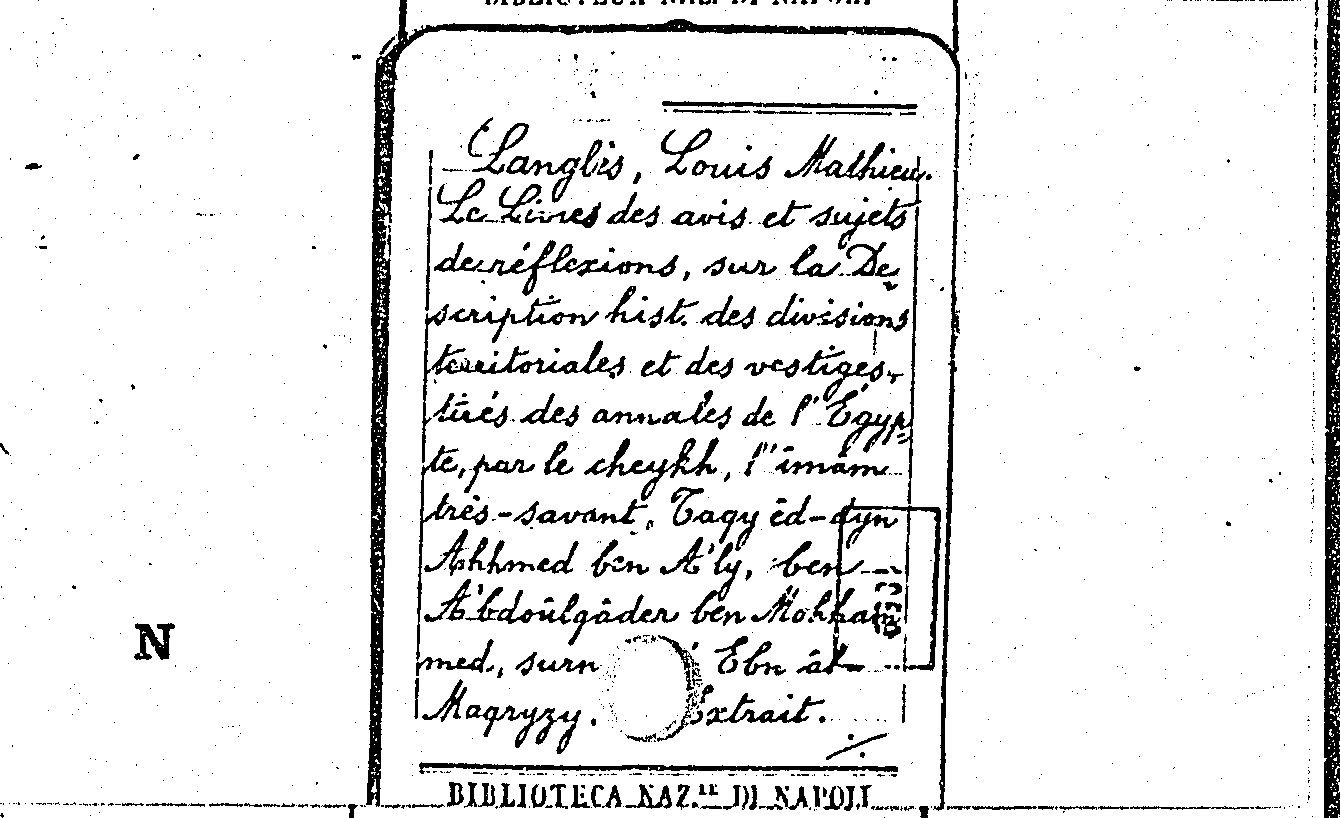 BIBLIOTECA NAZ. DI NAPOLI
Langlès, Louis Mathieu.
Le Livres des avis et sujets
de réflexions, sur la De-
scription hist. des divisions
territoriales et des vestiges,
tirés des annales de l'Égyp=
te, par le cheykh, l'imâm
très-savant, Taqy êd-dyn
Ahhmed ben A'ly, ben
A'bdoûlqâder ben Mohham
med, surn Ebn âl-
Maqryzy. Extrait.
./.
N
BIBLIOTECA NAZ.LE DI NAPOLI